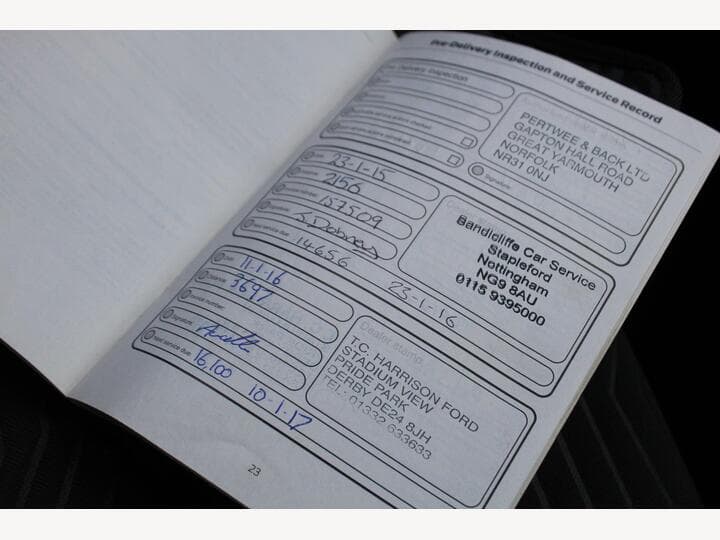 Pre-Delivery Inspection and Service Record
Delivery Inspection
PERTWEE & BACK LTD
GAPTON HALL ROAD
GREAT YARMOUTH
NORFOLK
NR31 0NJ
Signature:
23-1-15
2156
157509
S. Dobneys
14656
23-1-16
Bandicliffe Car Service
Stapleford
Nottingham
NG9 8AU
0115 9395000
Date:
11-1-16
Distance:
3697
Invoice number:
Signature:
Next service due:
16,100
10-1-17
Dealer stamp:
T.C. HARRISON FORD
STADIUM VIEW
PRIDE PARK
DERBY DE24 8JH
TEL: 01332 633633
23